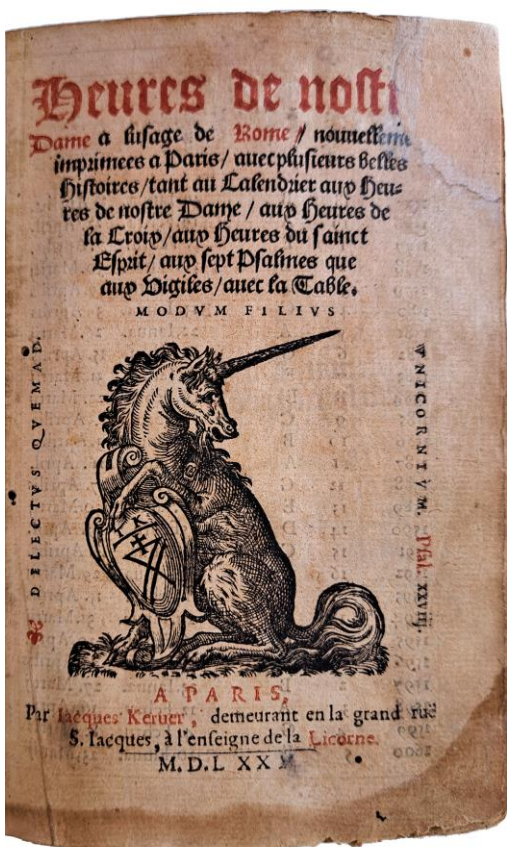 Heures de nostr
Dame a lusage de Rome / nouuellem
imprimees a Paris / auec plusieurs belles
Histoires / tant au Calendrier aux Heu-
res de nostre Dame / aux Heures de
la Croix / aux Heures du sainct
Esprit / aux sept Psalmes que
aux Vigiles / auec la Table.
DELECTVS QVEMAD.
MODVM FILIVS
VNICORNIVM. Psal. XXVIII.
A PARIS,
Par Iacques Keruer, demeurant en la grand rue
S. Iacques, à l'enseigne de la Licorne.
M. D. L XX